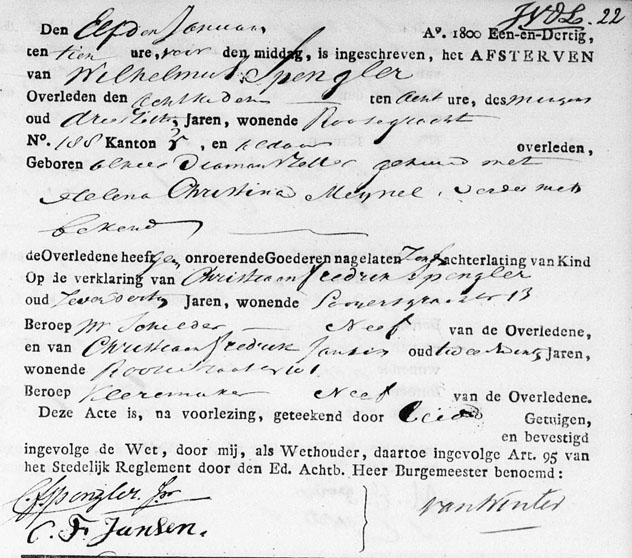 JVDL. 22
Den Elfden Januari A°. 1800 Een-en-Dertig,
ten tien ure, voor den middag, is ingeschreven, het AFSTERVEN
van Wilhelmus Spengler
Overleden den achtsteden ten acht ure, des morgens
oud drieenzestig Jaren, wonende Roosegracht
N°. 188 Kanton en aldaar overleden,
Geboren alhier Diamantzetter gehuwd met
Helena Christina Meynel, verder niet
bekend
de Overledene heeft geen onroerende Goederen nagelaten Zonder achterlating van Kind
Op de verklaring van Christiaan Fredrik Spengler
oud Zevendertig Jaren, wonende Lauriersgracht 13
Beroep Mr Schilder Neef van de Overledene,
en van Christiaan Fredrik Jansen oud Jaren,
wonende Roosestraat 101
Beroep Kleermaker Neef van de Overledene.
Deze Acte is, na voorlezing, geteekend door beide Getuigen,
en bevestigd
ingevolge de Wet, door mij, als Wethouder, daartoe ingevolge Art. 95 van
het Stedelijk Reglement door den Ed. Achtb. Heer Burgemeester benoemd:
C. F. Spengler Jr
van Winter
C. F. Jansen.